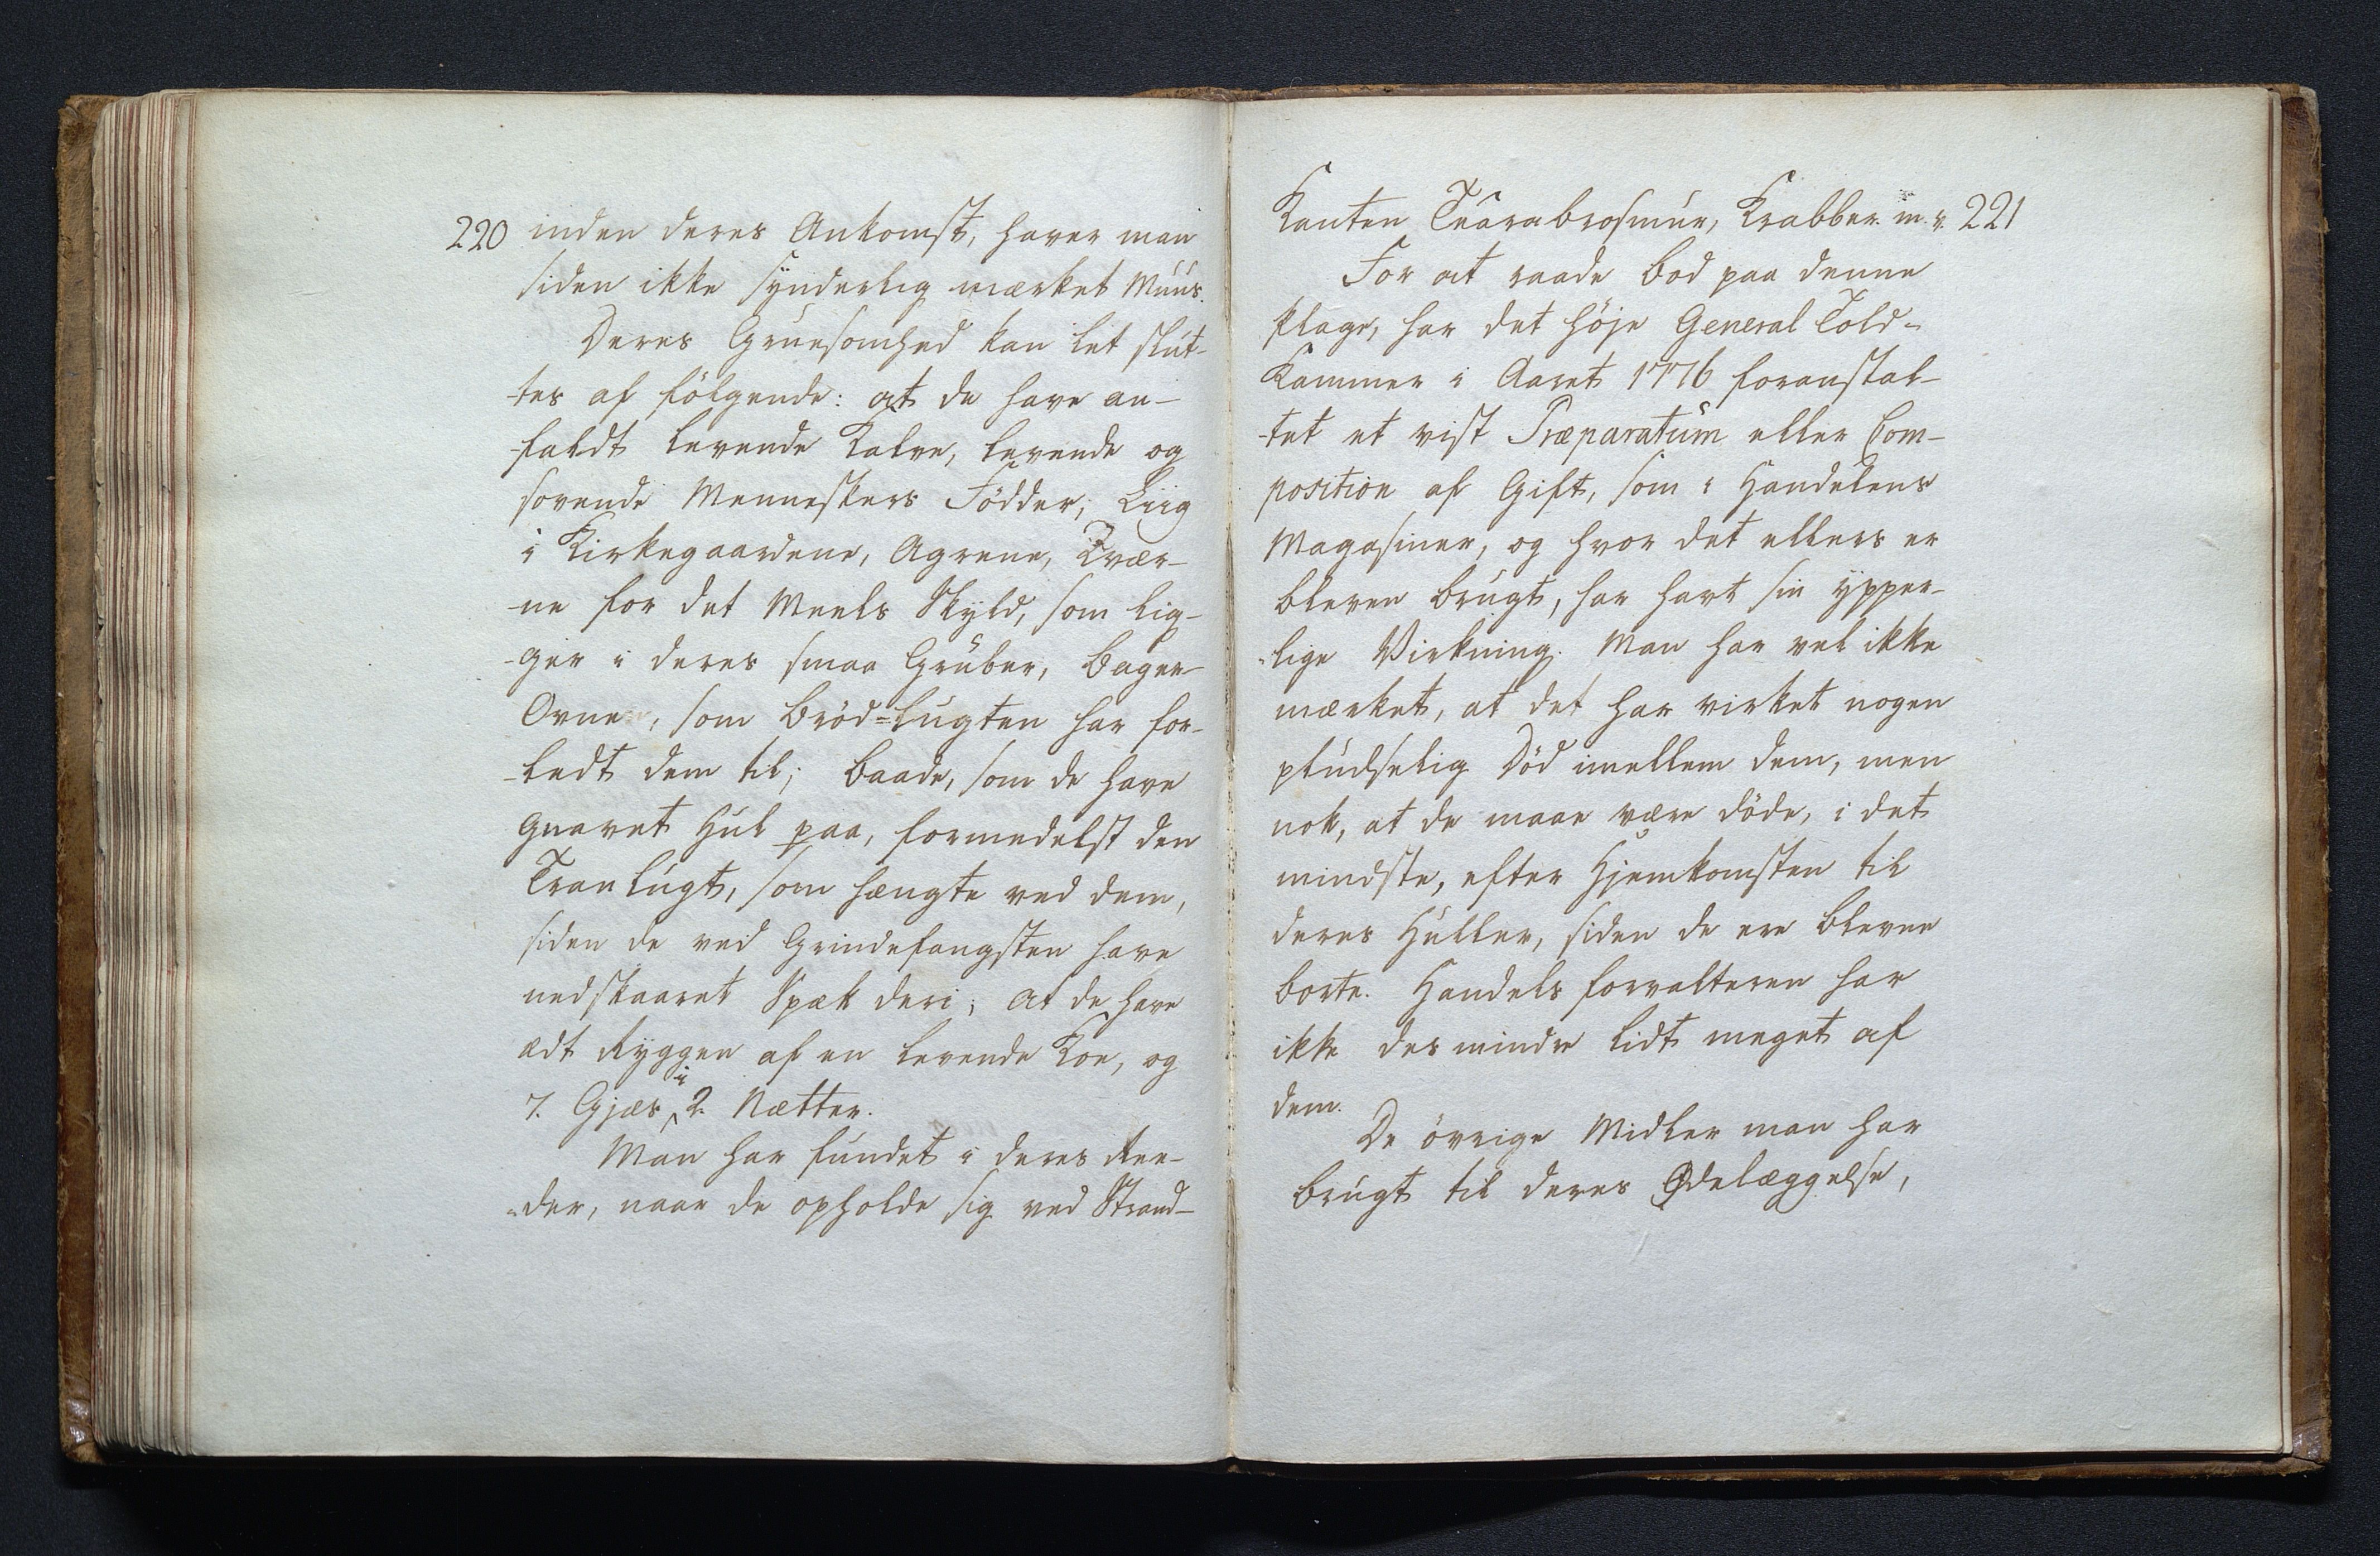 220 inden deres Ankomst, haver man
siden ikke synderlig mærket Muus.
Deres Gruesomhed kan let slut-
-tes af følgende: at de have an-
-faldt levende Kalve, levende og
sovende Menneskers Fødder, Liig
i Kirkegaardene, Agrene, Qvær-
-ne for det Meels Skyld, som lig-
-ger i deres smaa Gruber, Bager-
Ovne, som Brød-Lugten har for-
-ledt dem til; Baade, som de have
gnavet Hul paa, formedelst den
Tran Lugt, som hængte ved dem,
siden de ved Grindefangsten have
nedskaaret Spæk deri; At de have
ædt Ryggen af en levende Koe, og
7. Gjæs i 2. Nætter.
Man har fundet i deres Ree-
-der, naar de opholde sig ved Strand-
Kanten Tarabrosmur, Krabber m. v. 221
For at raade Bod paa denne
Plage, har det høje General Told-
Kammer i Aaret 1776 foranstal-
-tet et vist Præparatum eller Com-
position af Gift, som i Handelens
Magasiner, og hvor det ellers er
bleven brugt, har havt sin ypper-
-lige Virkning. Man har vel ikke
mærket, at det har virket nogen
pludselig Død imellem dem, men
nok, at de maae være døde, i det
mindste, efter Hjemkomsten til
deres Huller, siden de ere blevne
borte. Handels forvalteren har
ikke des mindre lidt meget af
dem.
De øvrige Midler man har
brugt til deres Ødelæggelse,